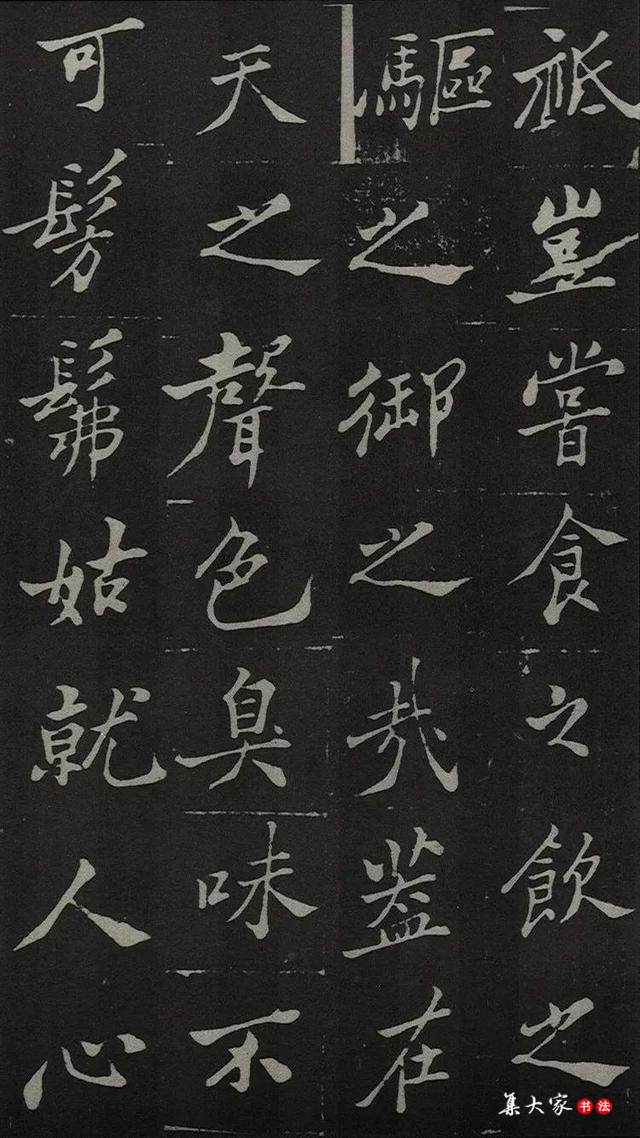 祗豈嘗食之飲之
驅之御之哉葢在
天之聲色臭味不
可髣髴姑就人心
集大家 书法